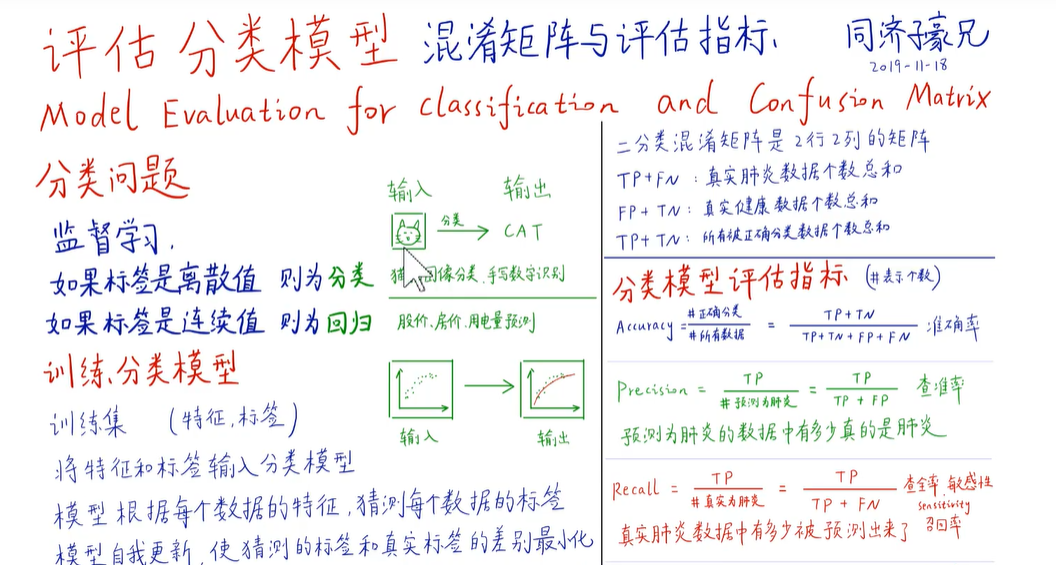 评估分类模型 混淆矩阵与评估指标
同济子豪兄
2019-11-18
Model Evaluation for classification and Confusion Matrix
分类问题
监督学习,
如果标签是离散值 则为分类
如果标签是连续值 则为回归
输入 输出
分类
CAT
猫 图像分类、手写数字识别
股价、房价、用电量预测
训练分类模型
输入 输出
训练集 (特征,标签)
将特征和标签输入分类模型
模型根据每个数据的特征,猜测每个数据的标签
模型自我更新,使猜测的标签和真实标签的差别最小化
二分类混淆矩阵是2行2列的矩阵
TP+FN:真实肺炎数据个数总和
FP+TN:真实健康数据个数总和
TP+TN:所有被正确分类数据个数总和
分类模型评估指标 (#表示个数)
Accuracy = #正确分类 / #所有数据 = TP+TN / TP+TN+FP+FN 准确率
Precision = TP / #预测为肺炎 = TP / TP + FP 查准率
预测为肺炎的数据中有多少真的是肺炎
Recall = TP / #真实为肺炎 = TP / TP + FN 查全率、敏感性
Sensitivity
召回率
真实肺炎数据中有多少被预测出来了